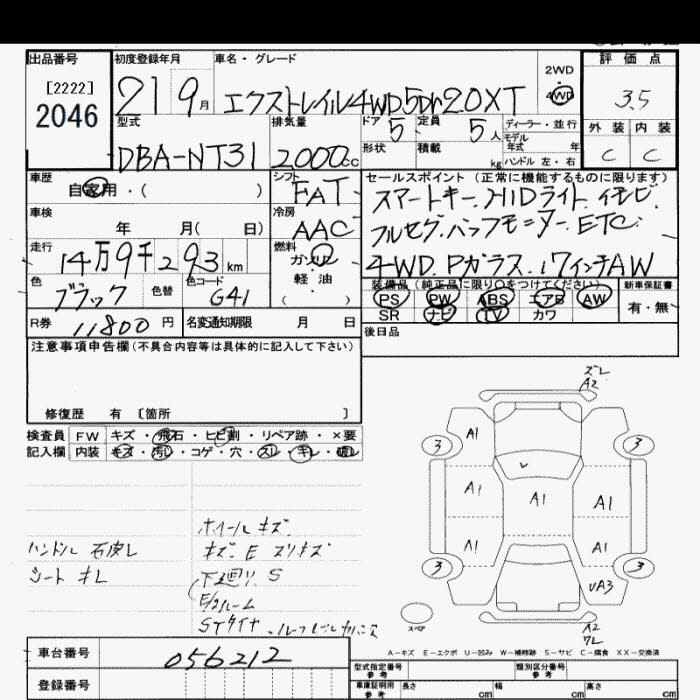 出品番号
[2222]
2046
初度登録年月
21 9月
車名・グレード
エクストレイル4WD.5Dr20XT
2WD
4WD
評価点
3.5
外装 内装
C C
型式
DBA-NT31
排気量
2000cc
ドア 5
定員 5人
形状
積載 kg
ディーラー・並行
モデル年式 年
ハンドル 左・右
車歴
自家用・( )
シフト
FAT
セールスポイント(正常に機能するものに限ります)
スマートキー.HIDライト.イモビ.
フルセグ.バックモニター.ETC.
4WD.Pガラス.17インチAW
車検
年 月( 日)
冷房
AAC
走行
14万9千293km
燃料
ガソリン
軽油
( )
色
ブラック
色替
色コード
G41
装備品(純正品に限り○をつけてください)
PS PW ABS エアB AW
SR ナビ TV カワ
新車保証書
有・無
R券
11800円
名変通知期限 月 日
後日品
注意事項申告欄(不具合内容等は具体的に記入して下さい)
修復歴 有 〔箇所 〕
検査員記入欄
FW キズ・飛石・ヒビ割・リペア跡・×要
内装 キズ・汚れ・コゲ・穴・スレ・キレ・破れ
ハンドル
シート キレ
ホイールキズ
キズ.E スリキズ
下廻り S
E/gルーム
STタイヤ
ズレ
A2
A1
3
3
A1
A1
A1
A1
A1
3
3
UA3
スペア
A2
ワレ
A-キズ E-エクボ U-凹み W-補修跡 S-サビ C-腐食 XX-交換済
車台番号
056212
登録番号
型式指定番号
参考
類別区分番号
参考
車庫証明用
参考
長さ cm
幅 cm
高さ cm